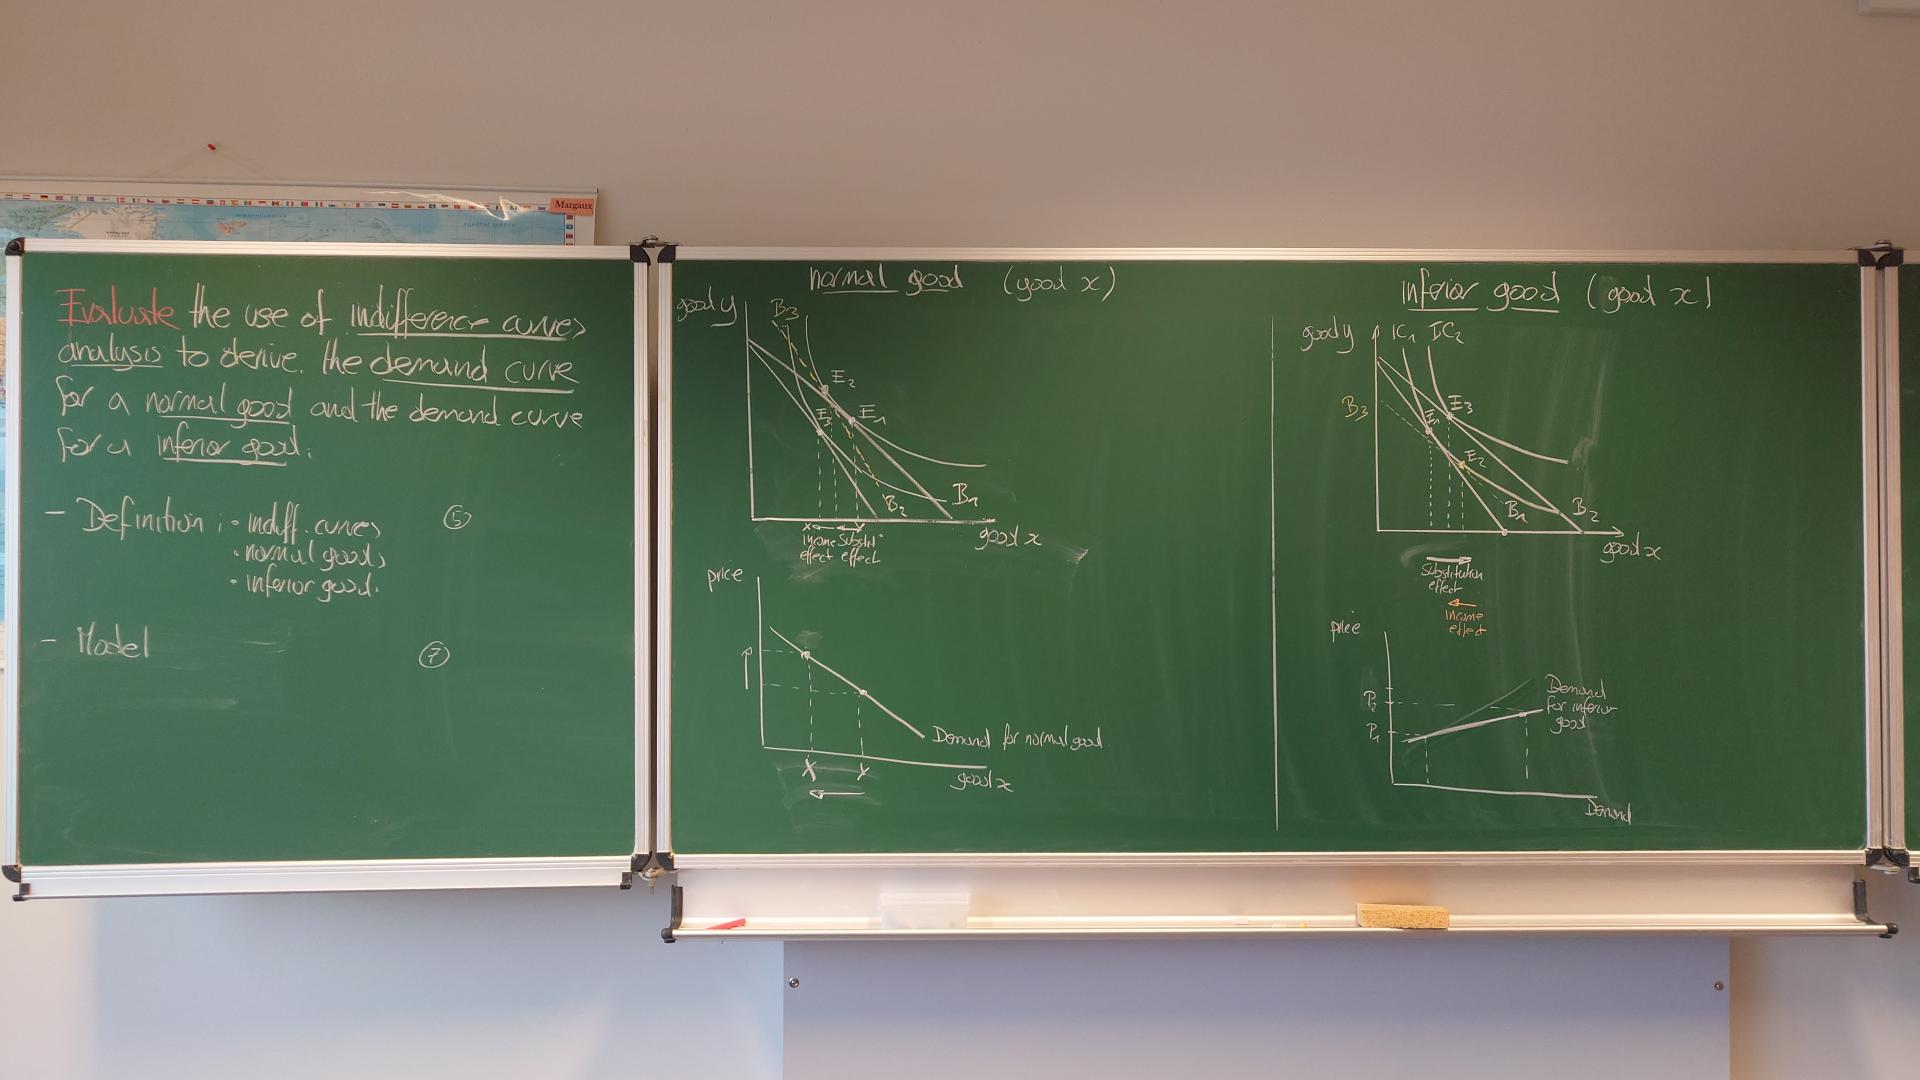 Margaux
Evaluate the use of indifference curves
analysis to derive the demand curve
for a normal good and the demand curve
for a inferior good.
- Definition: • indiff. curves
• normal goods
• inferior good.
5
- Model
7
normal good (good x)
good y
B3
E2
E1
E3
B1
B2
good x
x x
income Substit°
effect effect
price
Demand for normal good
x x
good x
inferior good (good x)
good y
IC1 IC2
B3
E3
E1
E2
B1
B2
good x
Substitution
effect
income
effect
price
P2
P1
Demand
for inferior
good
Demand